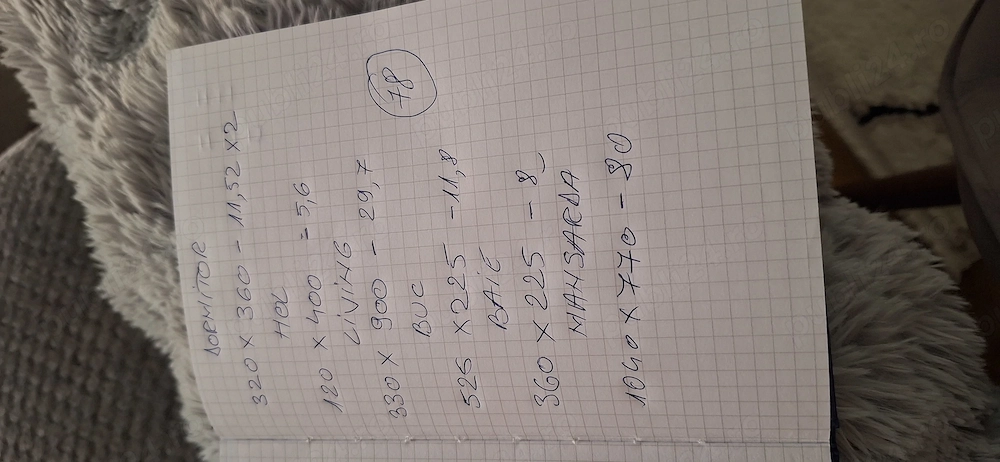 DORMITOR
320 X 360 - 11,52 X 2
HOL
120 X 400 = 5,6
LIVING
330 X 900 - 29,7
BUC
526 X 225 - 11,8
BAIE
360 X 225 - 8
MANSARDA
1040 X 770 - 80
78